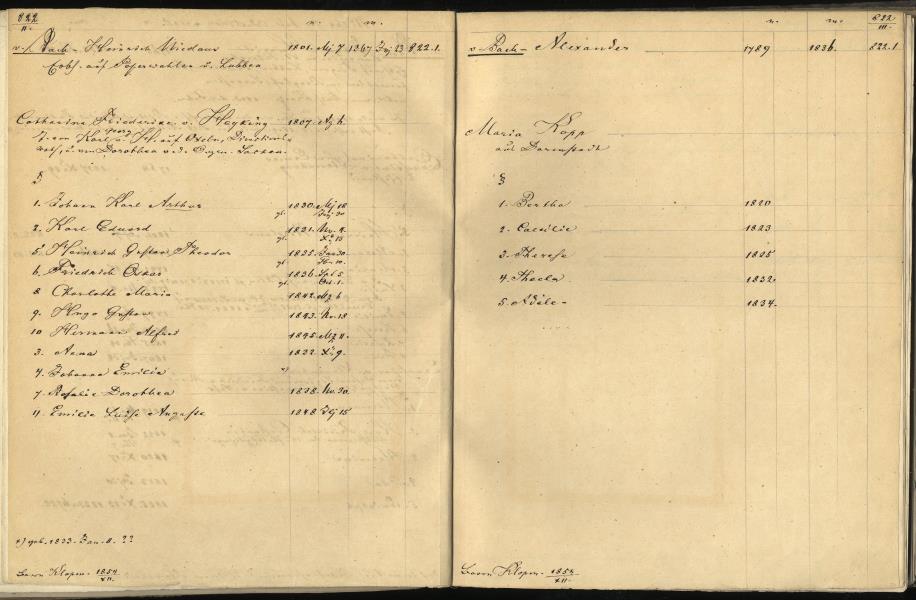 822
II.
n. m.
v. Bach - Heinrich Nicolaus 1801. Mz 7 1867 Jny 23 822.1.
Erbh. auf Poperwahlen u. Lubben
Catharine Friederike v. Heyking 1807. Ag 6.
1. Johann Karl Arthur 1830. Mz 18.
2. Karl Eduard 1831. Nv. 9.
X. 15
5. Heinrich Gustav Theodor 1835. Jan 30.
6. Friedrich Oskar 1836. Spt. 5.
Oct. 1.
8 Charlotte Maria 1842. Mz 6
9. Hugo Gustav 1843. Nv. 18
10 Hermann Alfred 1845. Mz 11.
3. Anna 1832. X. 9.
4. Johanna Emilie x)
7. Rosalie Dorothea 1838. Nv. 30
11. Emilie Luise Auguste 1848. Jly 15
x) geb. 1833. Jan. 8. ??
Baron Klopm. 1854
XII.
822
III.
n. m.
v. Bach - Alexander 1789 1836. 822.1
Maria Kopp
aus Darmstadt
§
1. Bertha 1820
2. Caecilie 1823
3. Therese 1825
4. Thecla 1832.
5. Adèle - 1834.
Baron Klopm. 1854
XII.